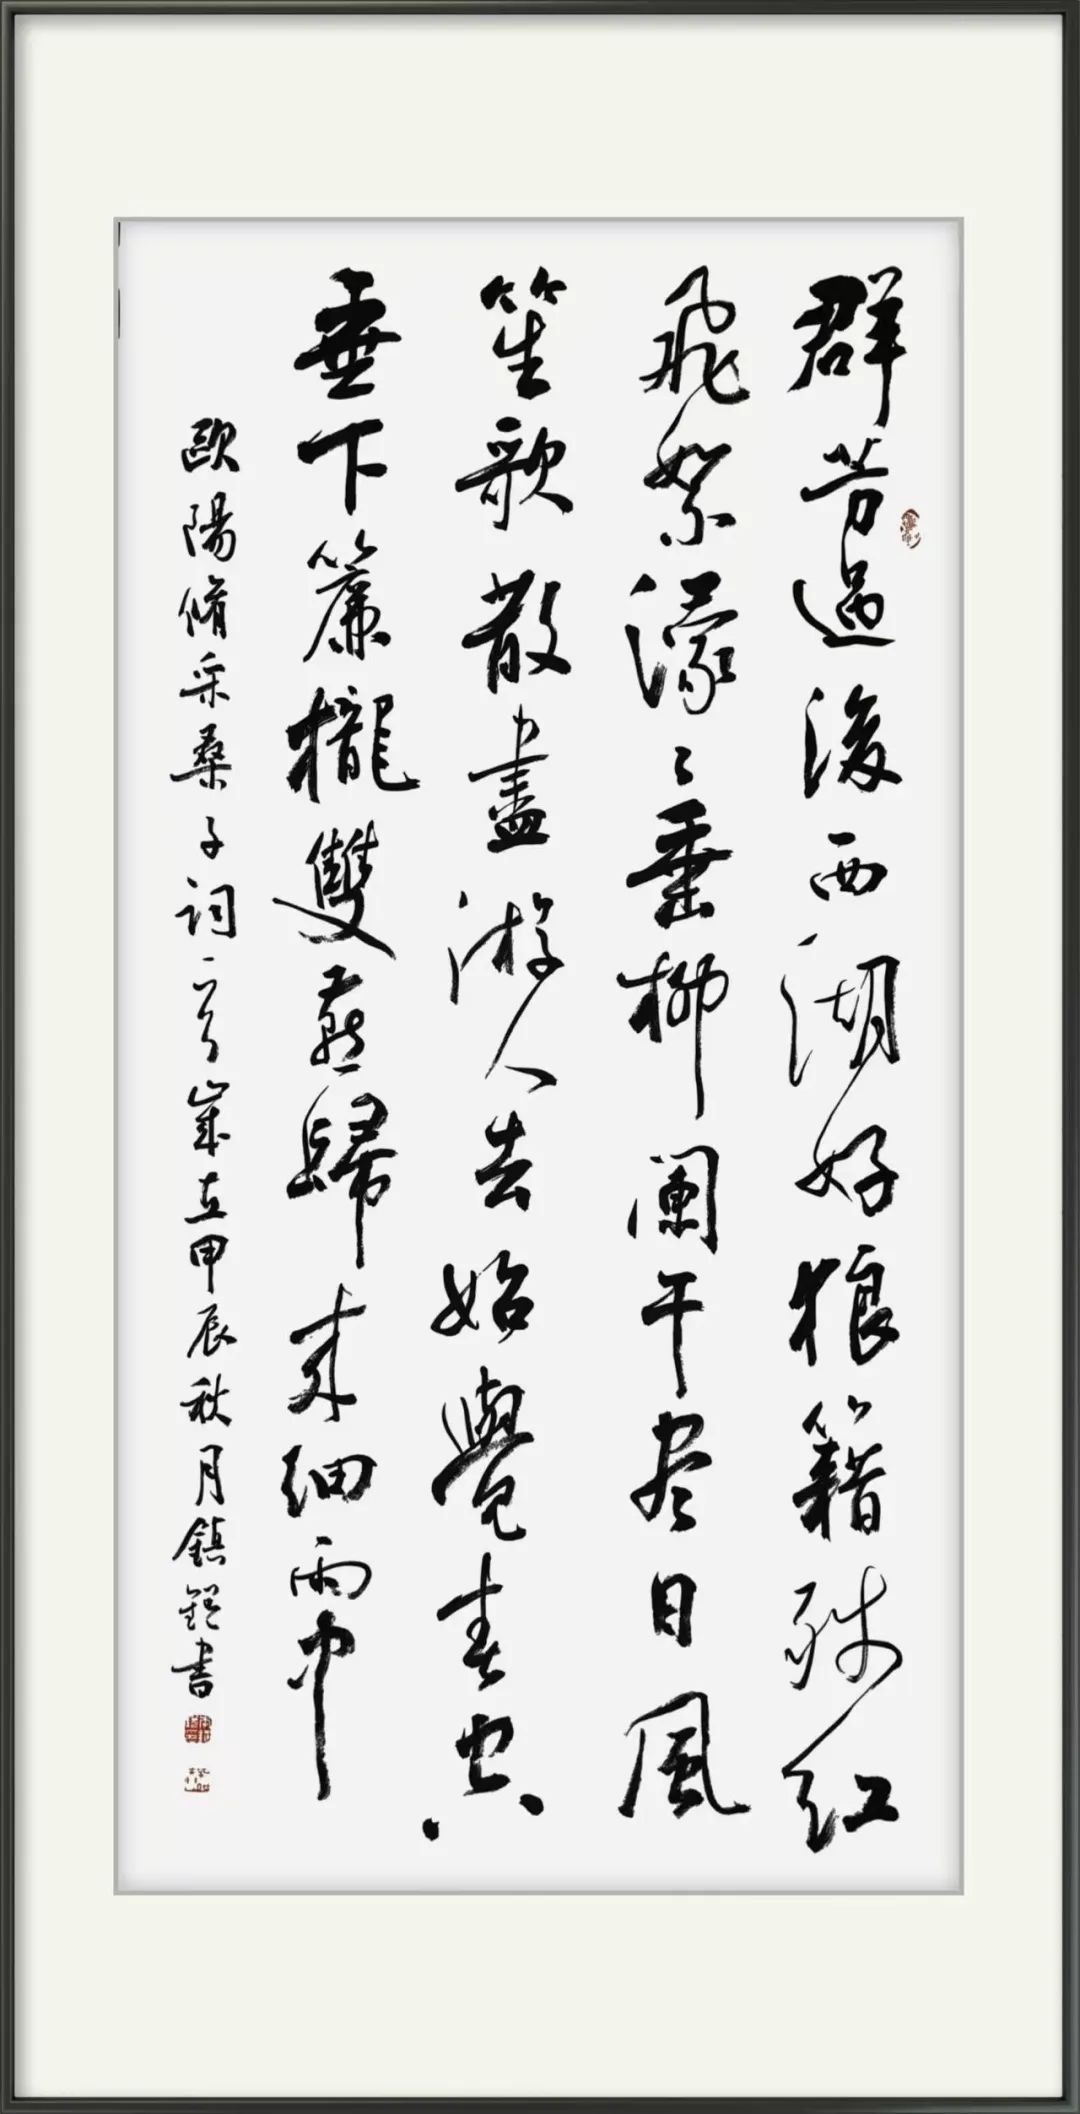 群芳過後西湖好狼籍残紅
飛絮濛々垂柳闌干尽日風
笙歌散盡游人去始覺春空
垂下簾櫳雙燕歸来細雨中
歐陽脩采桑子詞一首歲在甲辰秋月鎮書